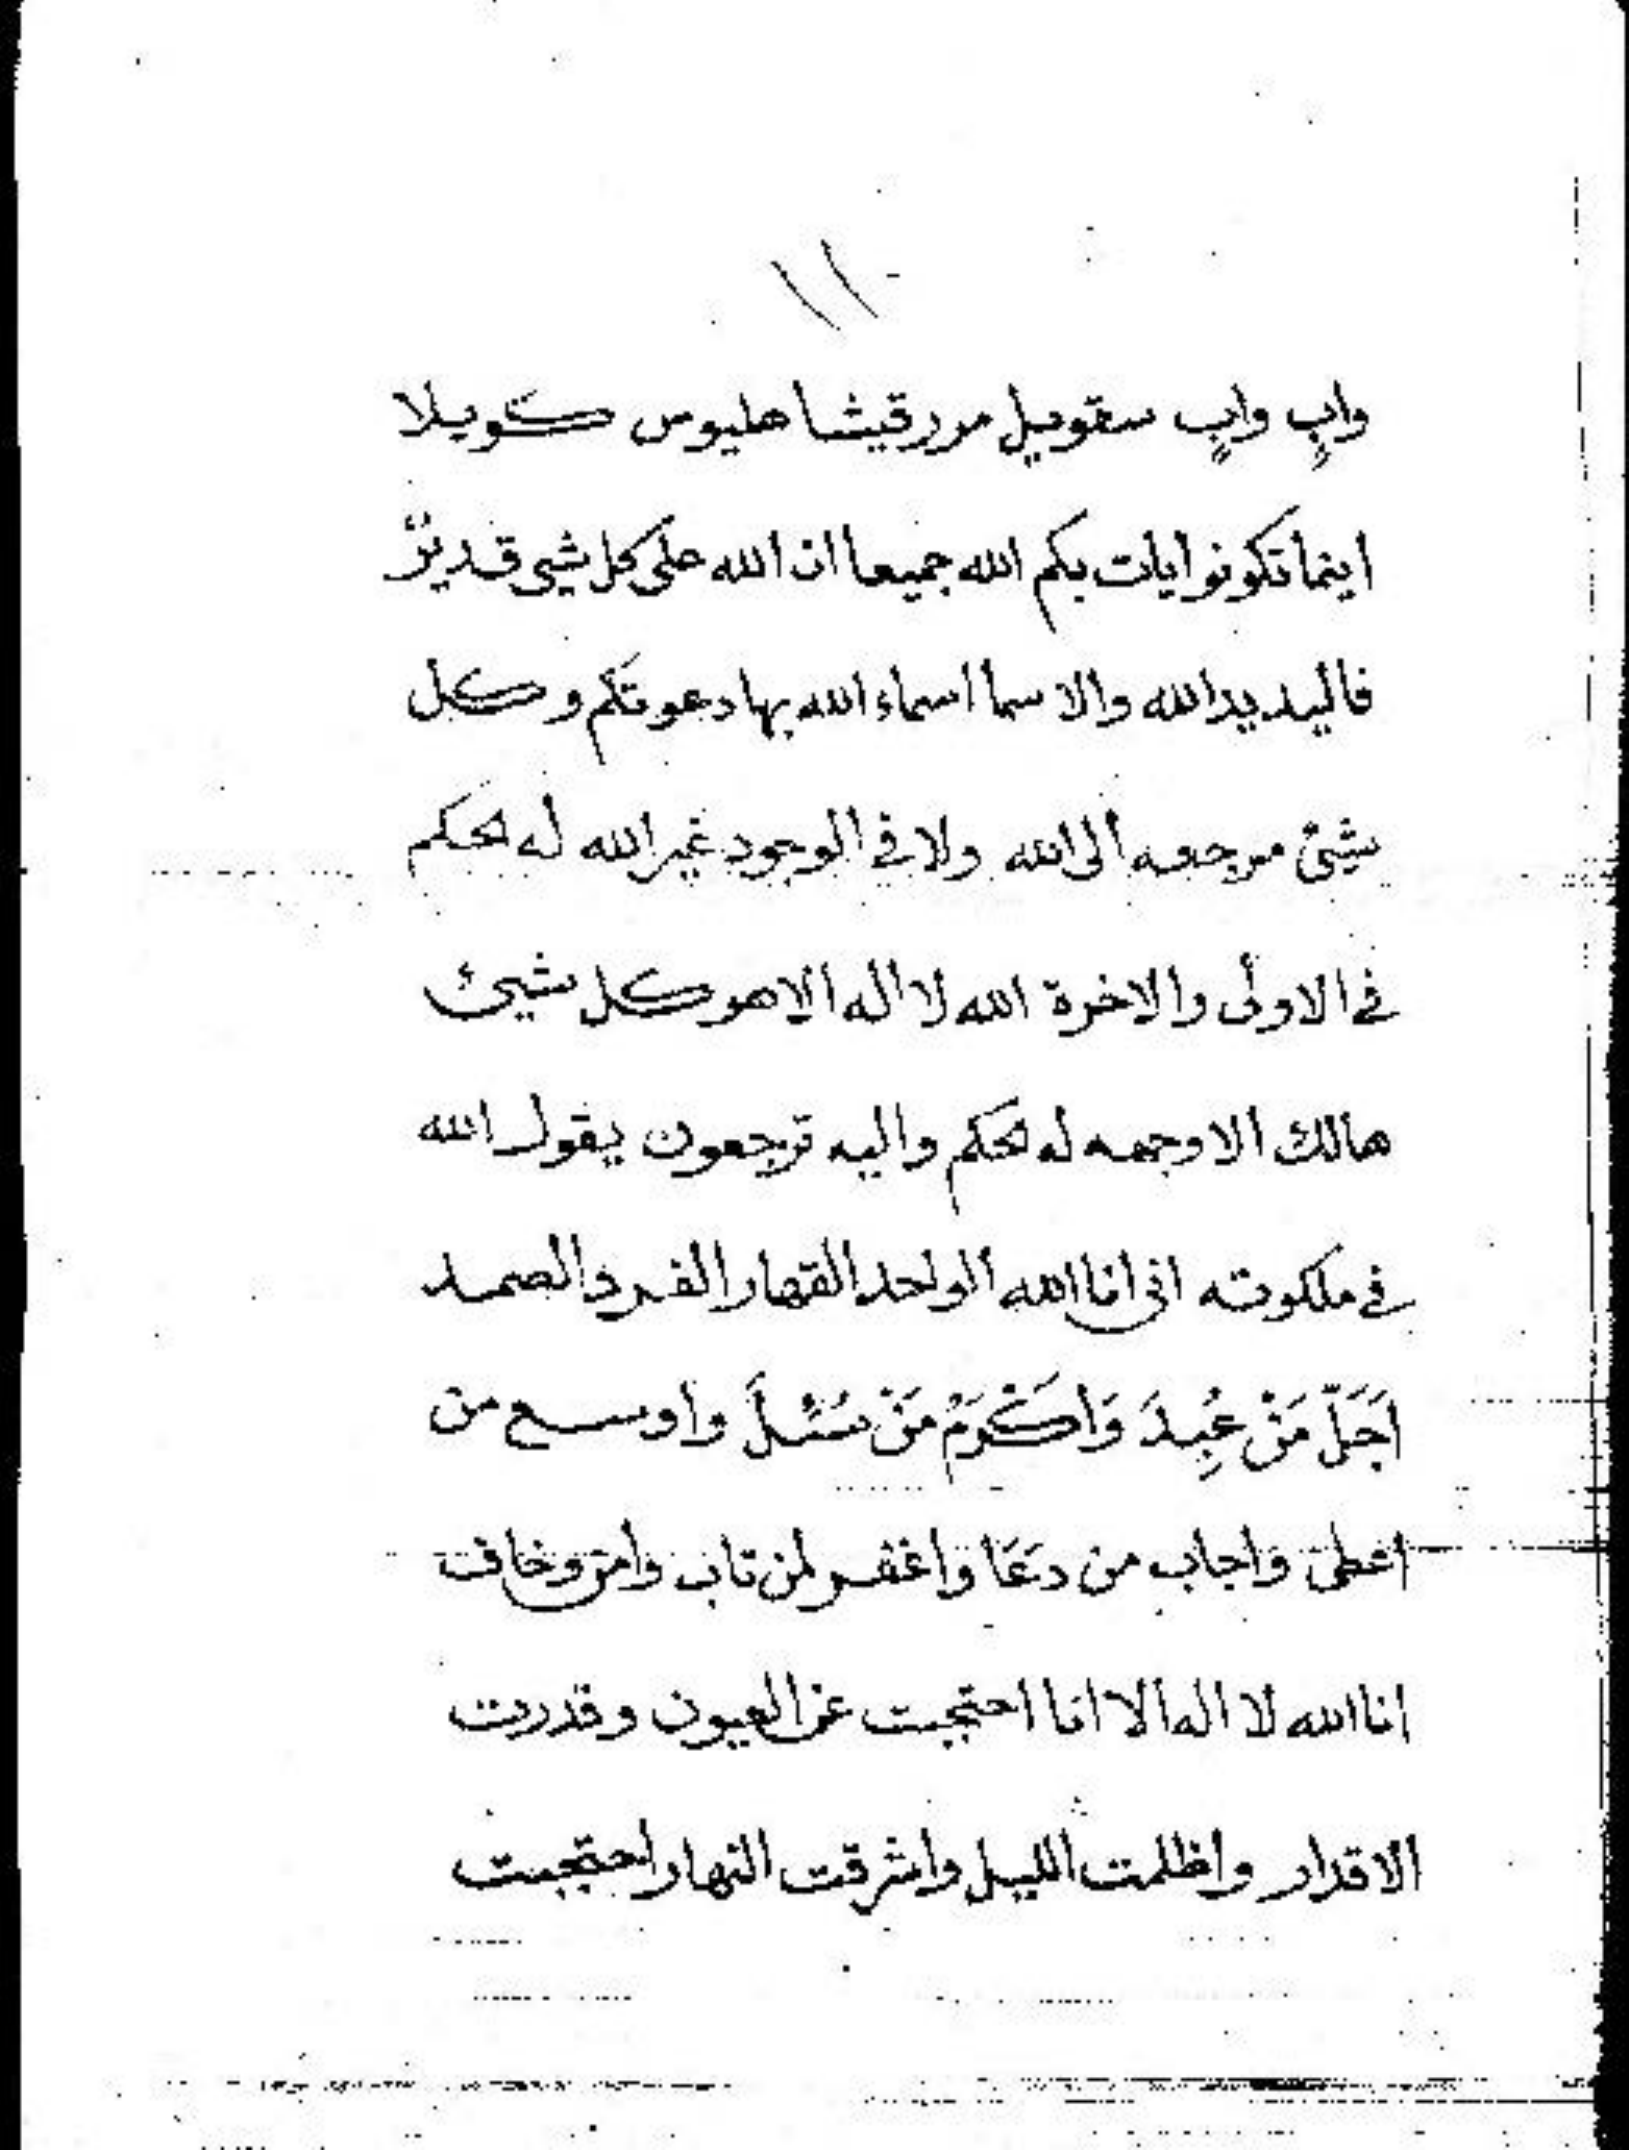 ١١
وابٍ وابٍ سقويل مررقيشا هليوس كويلا
اينما تكونوا يات بكم الله جميعا ان الله على كل شيى قديرٌ
فاليد يد الله والاسما اسماء الله بها دعوتكم وكل
شيئ مرجعه الى الله ولا في الوجود غير الله له لحكم
في الاولى والاخرة الله لا اله الا هو كل شيئ
هالك الا وجهه له لحكم واليه ترجعون يقول الله
في ملكوته انى انا الله الواحد القهار الفرد الصمد
اَجَلّ مَنْ عُبِدَ وَاكْرَمُ مَنْ سُئلَ واوسع من
اعطى واجاب من دعَا واغفر لمن تاب وامن وخاف
انا الله لا اله الا انا احتجبت عن العيون وقدرت
الاقدار واظلمت الليل واشرقت النهار احتجبت